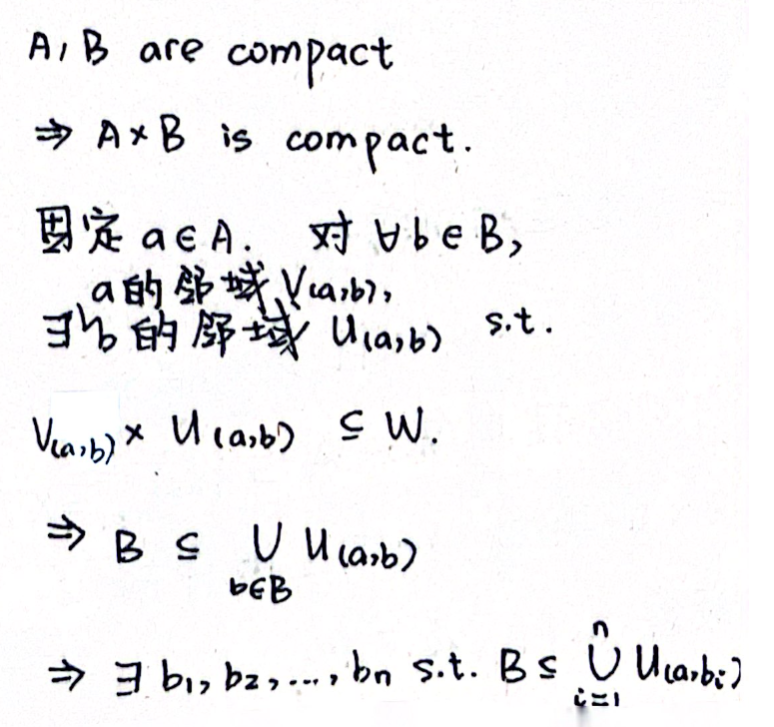 A, B are compact
⇒ A × B is compact.
固定 a ∈ A. 对 ∀b ∈ B,
a的邻域 V(a,b),
∃ b的邻域 U(a,b) s.t.
V(a,b) × U(a,b) ⊆ W.
⇒ B ⊆ ∪ U(a,b)
b∈B
⇒ ∃ b₁, b₂, ..., bₙ s.t. B ⊆ ∪ᵢ₌₁ⁿ U(a,bᵢ)